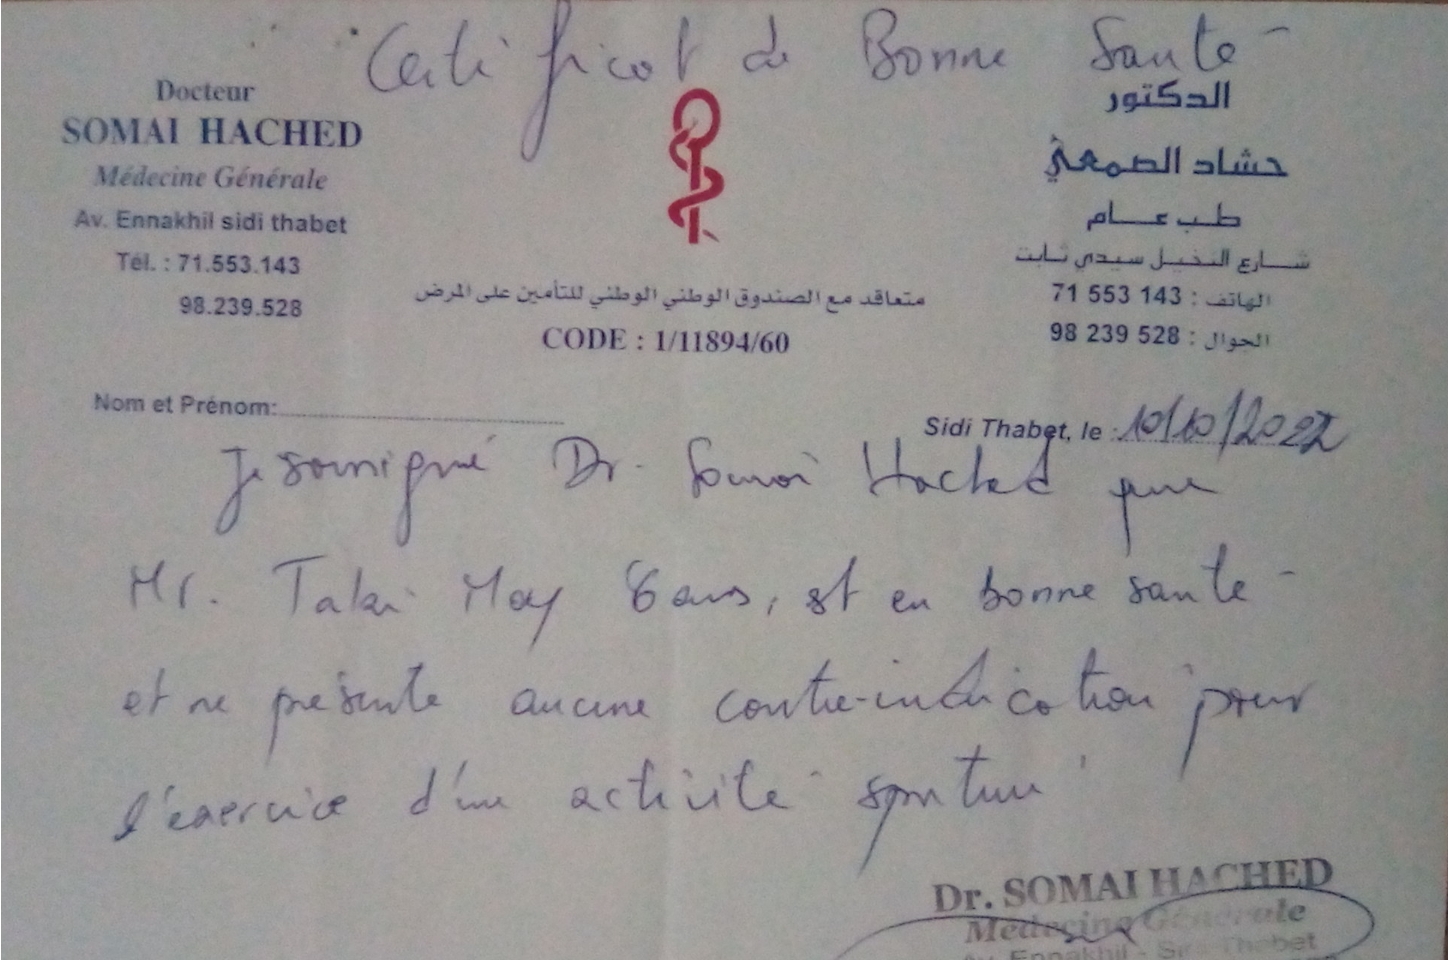 Certificat de Bonne Santé
Docteur
SOMAI HACHED
Médecine Générale
Av. Ennakhil sidi thabet
Tél. : 71.553.143
98.239.528
الدكتور
حشاد الصمعي
طب عام
شارع النخيل سيدي ثابت
الهاتف : 71 553 143
الجوال : 98 239 528
متعاقد مع الصندوق الوطني الوطني للتأمين على المرض
CODE : 1/11894/60
Nom et Prénom:
Sidi Thabet, le : 10/10/2022
Je soussigné Dr. Somai Hached que
Mr. Taker May 6 ans, est en bonne santé
et ne présente aucune contre-indication pour
l'exercice d'une activité
Dr. SOMAI HACHED
Médecine Générale
Av. Ennakhil - Sidi Thabet